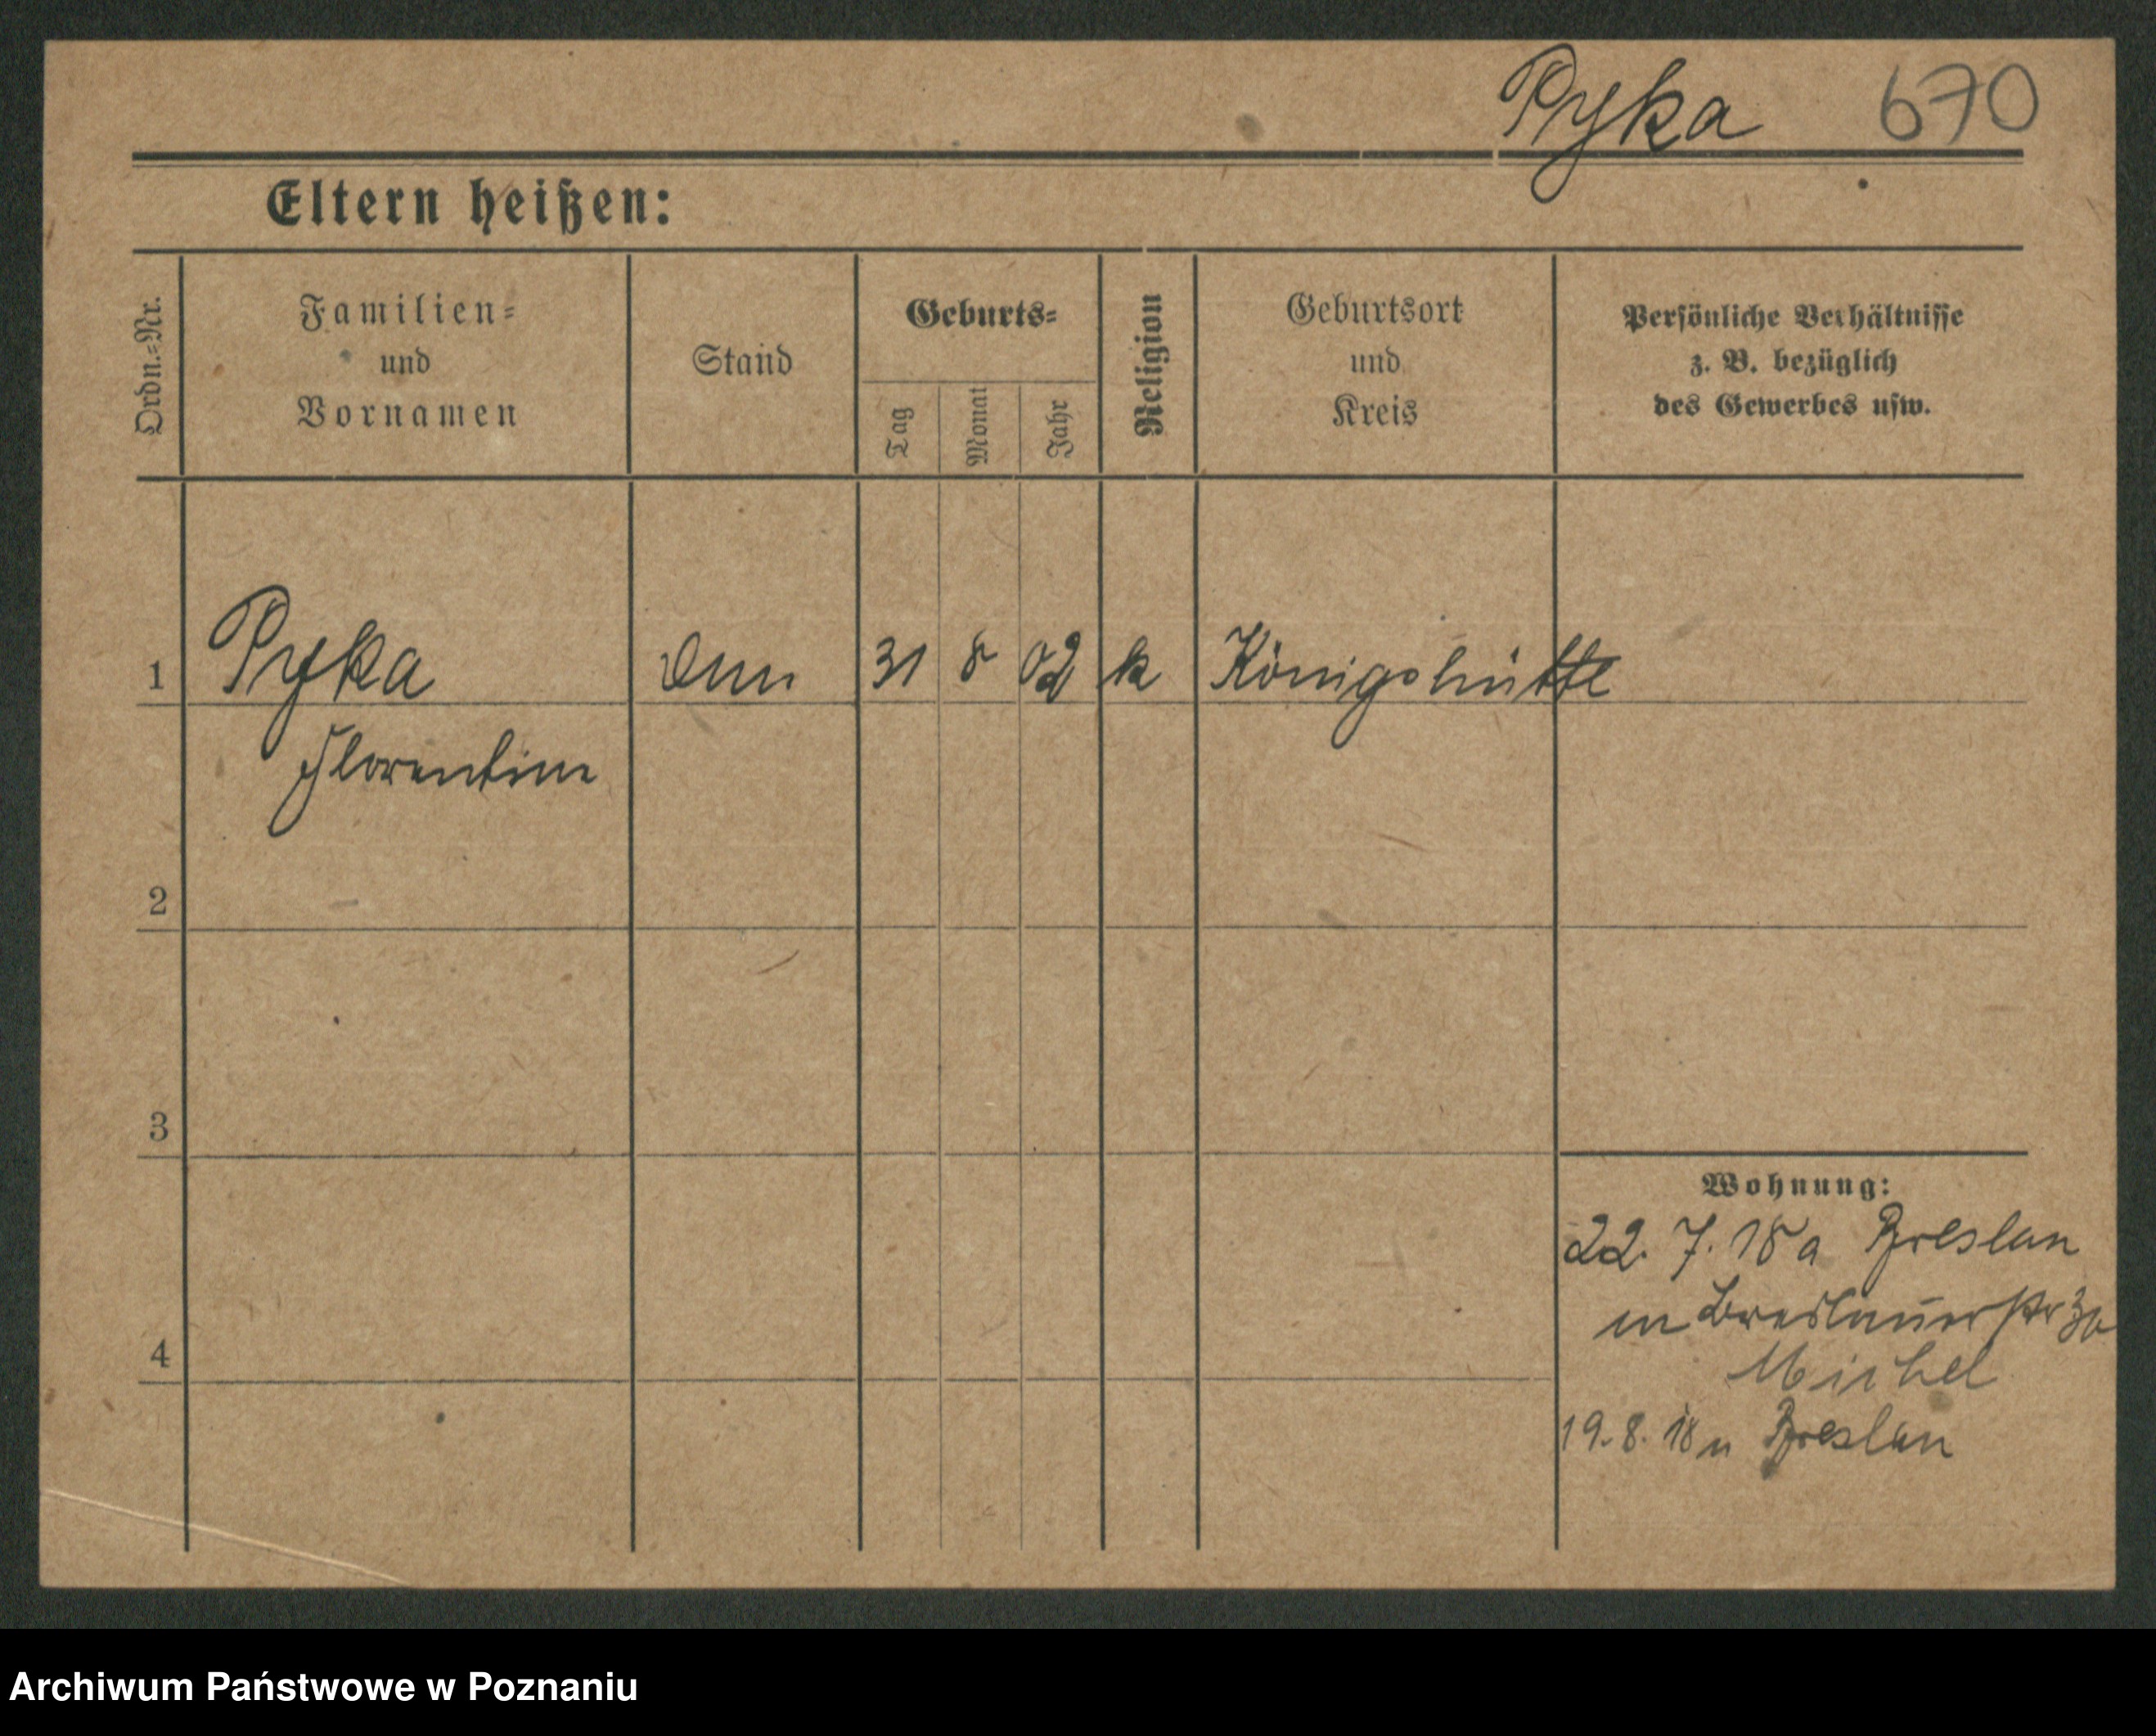 Pyka 670
Eltern heißen:
Ordn.-Nr.
Familien-
und
Vornamen
Stand
Geburts-
Tag
Monat
Jahr
Religion
Geburtsort
und
Kreis
Persönliche Verhältnisse
z. B. bezüglich
des Gewerbes usw.
1 Pyka 31 8 02 k Königshütte
Florentine
2
3
4
Wohnung:
22. 7. 18 a Breslau
Breslauerstr
Michel
19. 8. 18 n Breslau
Archiwum Państwowe w Poznaniu